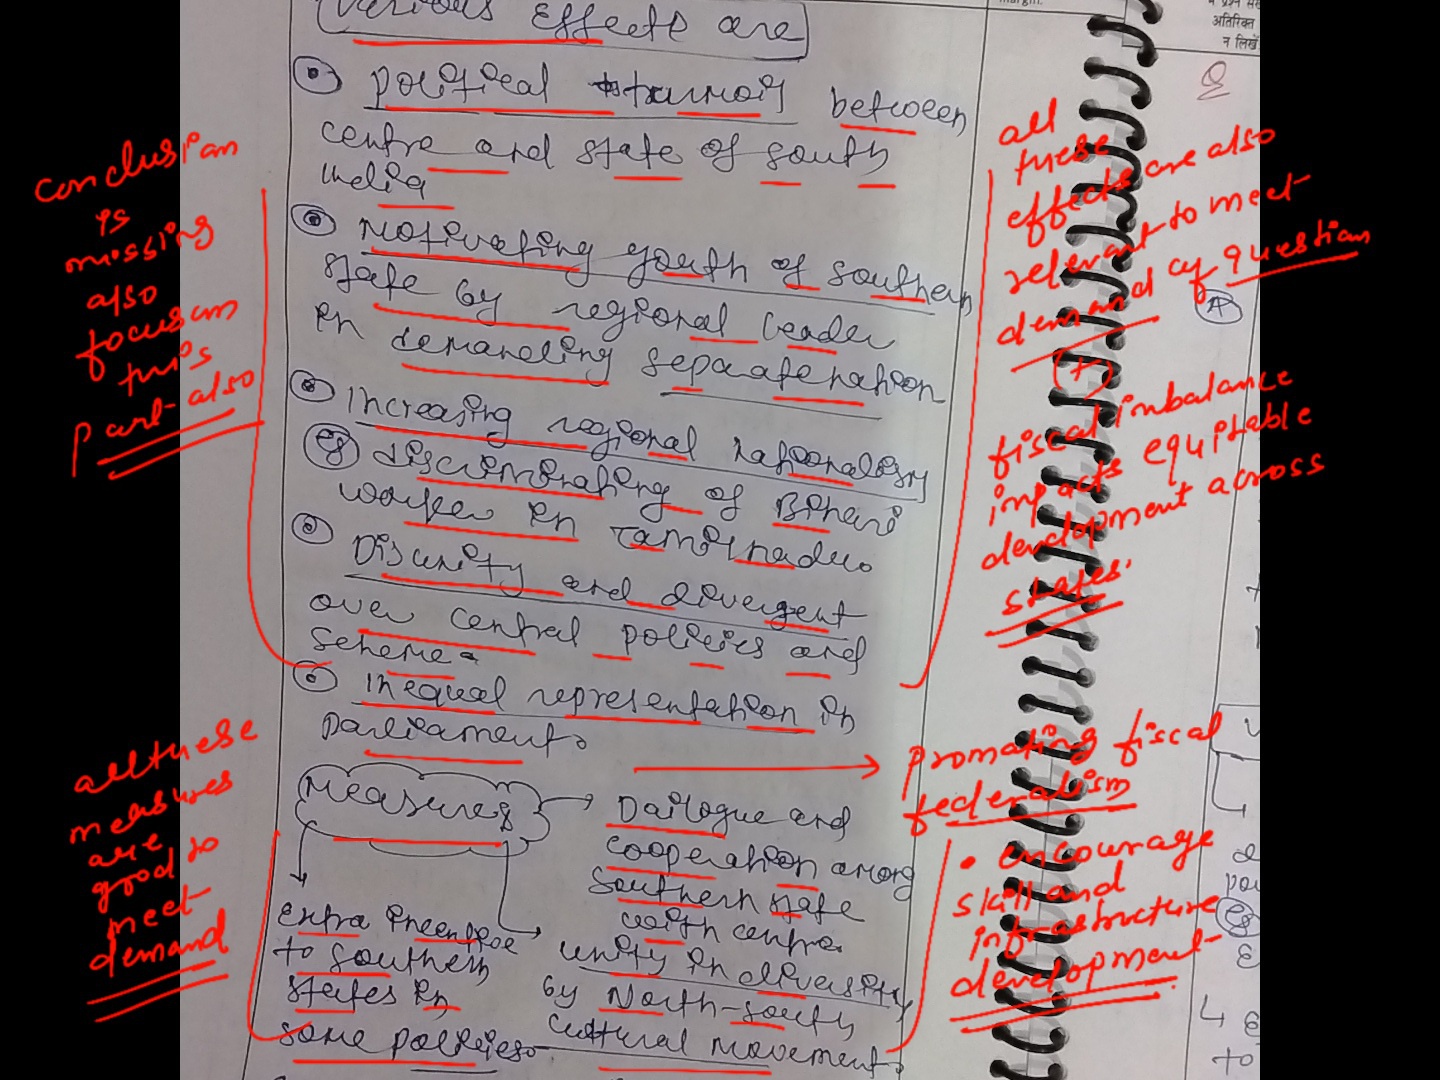 Various Effects are
Political turmoil between
centre and state of south
India
Motivating youth of southern
state by regional leader
in demanding separate nation
Increasing regional nationalism
eg discriminating of Bihari
worker in Tamilnadu.
Disunity and divergent
over central policies and
scheme.
Inequal representation in
parliament.
Measures
Dailogue and
cooperation among
Southern state
with centre.
Extra incentive
to Southern
states in
some policies.
unity in diversity
by North-South
cultural movement.
conclusion
is
missing
also
focus on
this
part also
all these
measures
are
good to
meet
demand
all
these
effects are also
relevant to meet
demand of question
(+)
fiscal imbalance
impacts equitable
development across
states.
promoting fiscal
federalism
• encourage
skill and
infrastructure
development
margin.
अतिरिक्त
न लिखें
Q
A
eg